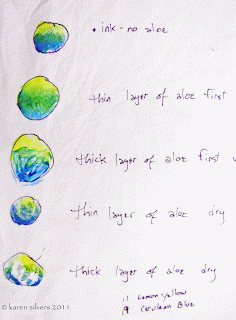 • ink - no aloe
thin layer of aloe first
thick layer of aloe first
thin layer of aloe dry
thick layer of aloe dry
11 Lemon yellow
19 Cerulean Blue
© karen silvers 2011